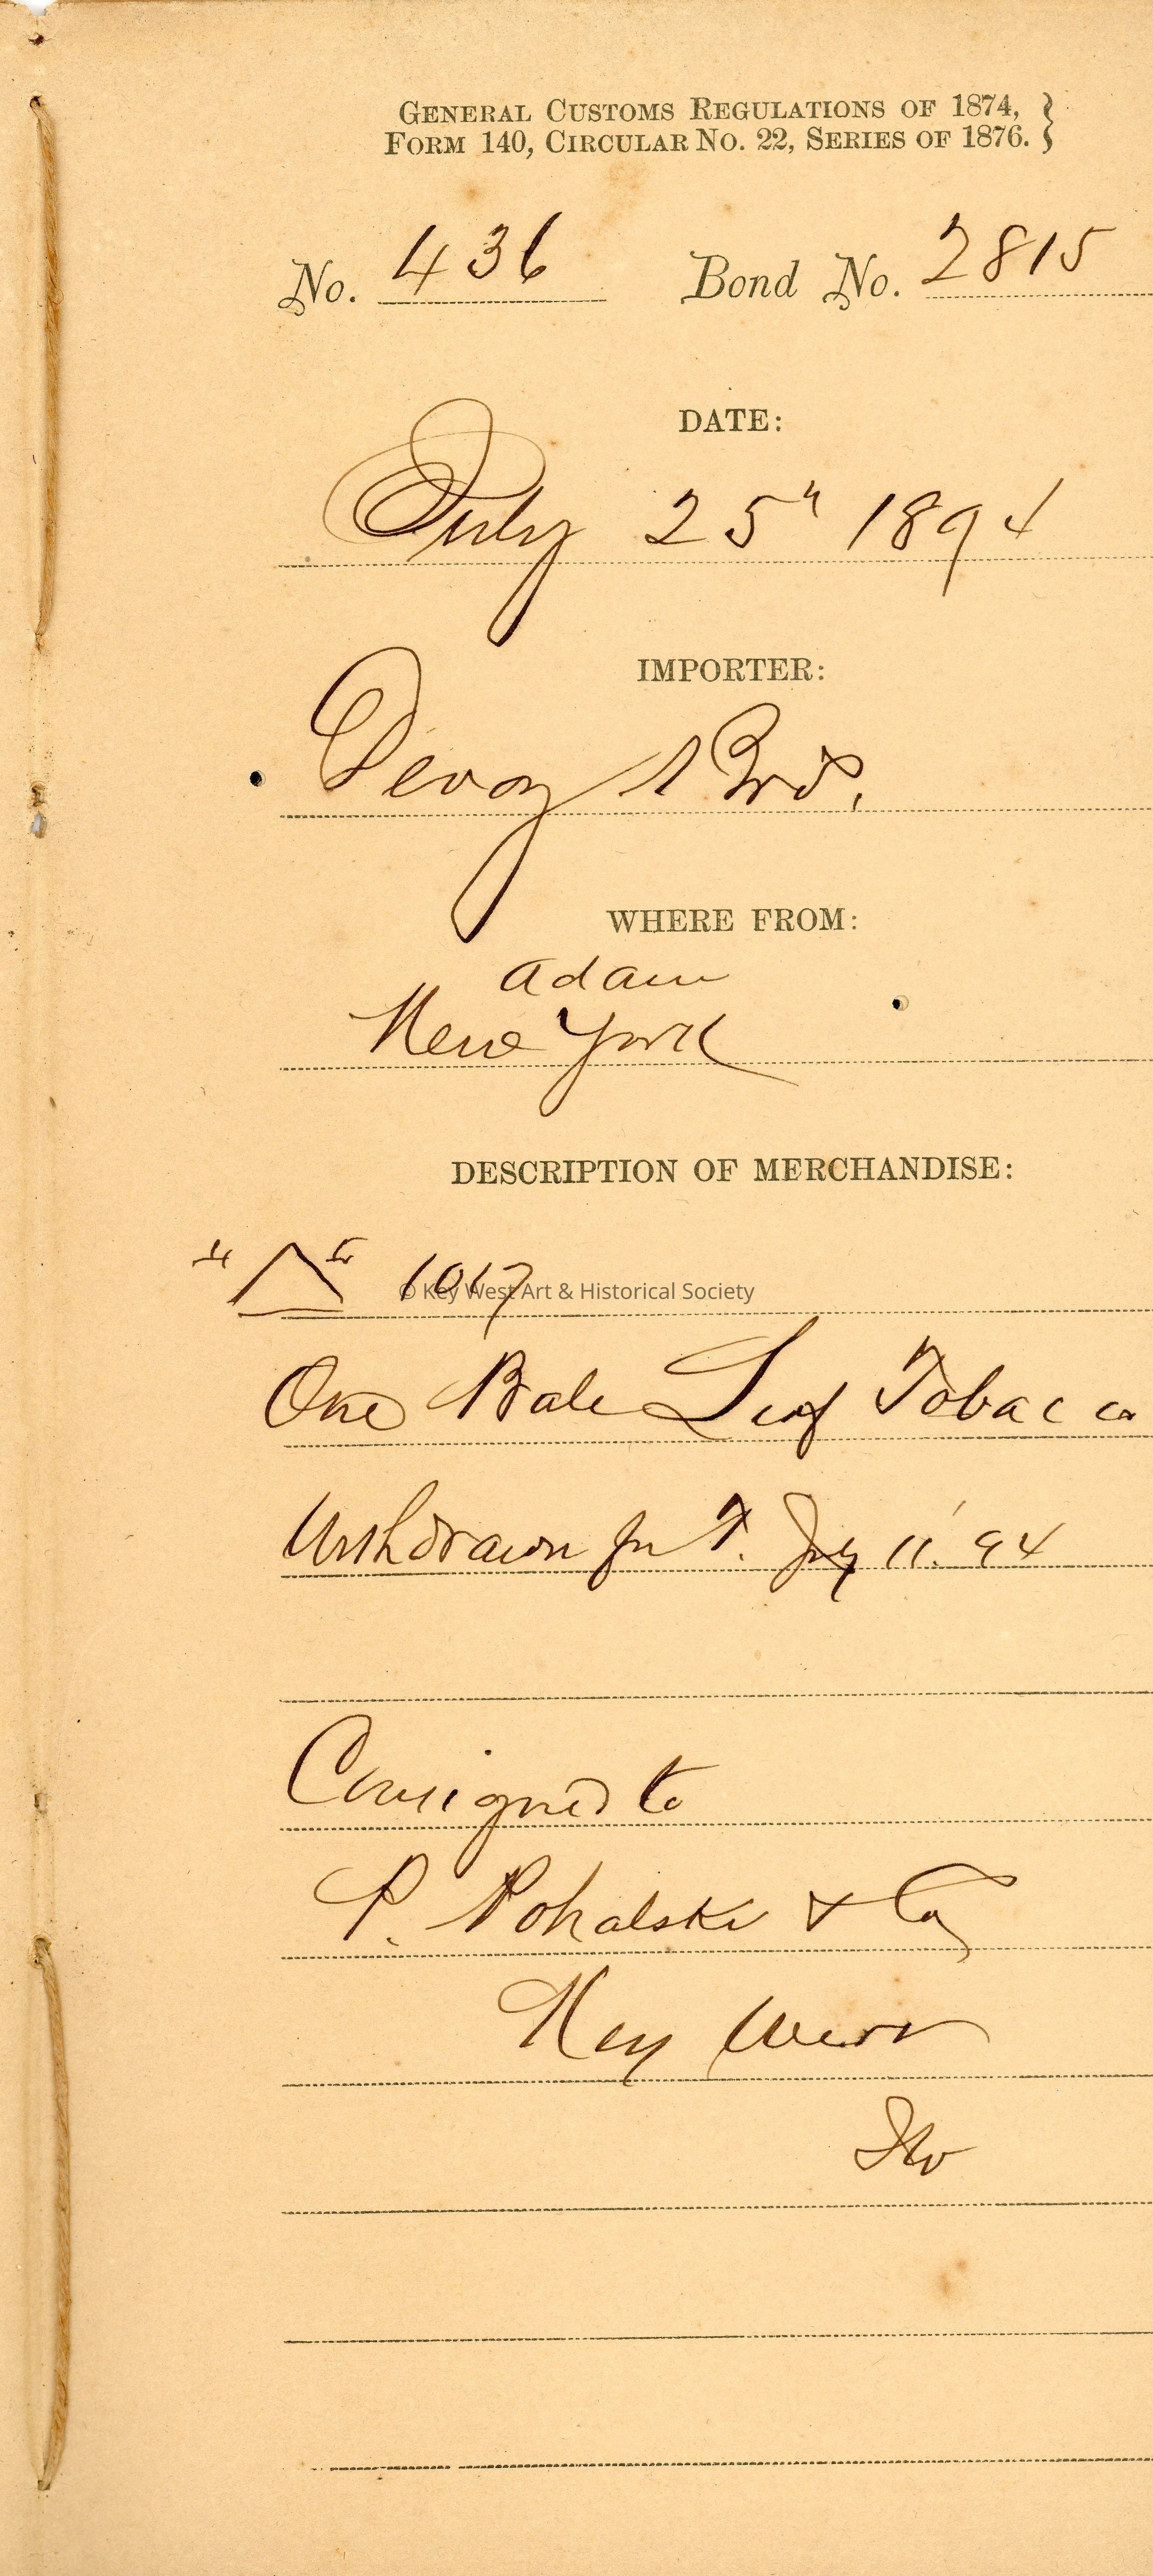 GENERAL CUSTOMS REGULATIONS OF 1874,
FORM 140, CIRCULAR NO. 22, SERIES OF 1876.
No. 436 Bond No. 2815
DATE:
July 25" 1894
IMPORTER:
Devoy & Bro.
WHERE FROM:
Adam
New York
DESCRIPTION OF MERCHANDISE:
1017
© Key West Art & Historical Society
One Bale Leaf Tobacco
Withdrawn for T. July 11. '94
Consigned to
P. Pohalski & Co
Key West